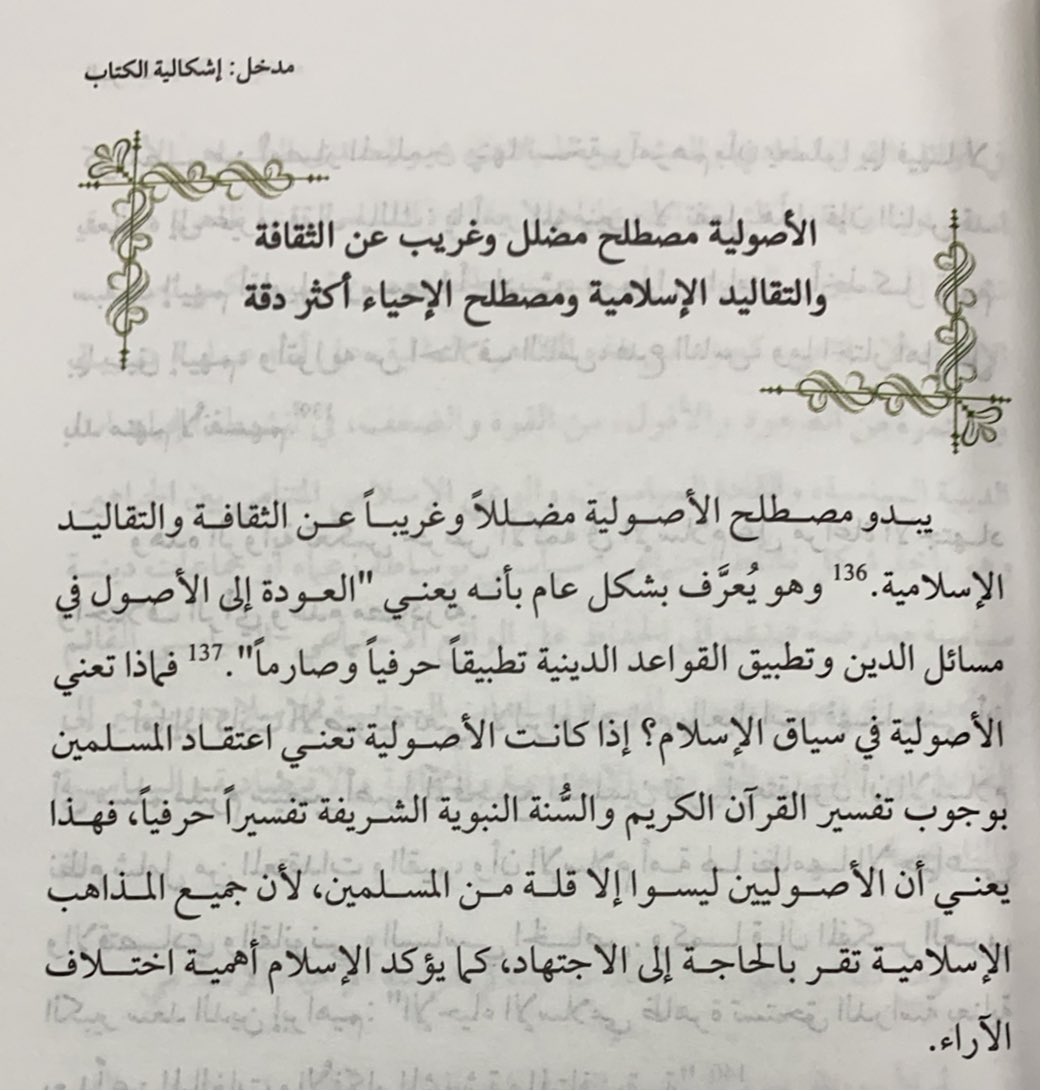 مدخل: إشكالية الكتاب
الأصولية مصطلح مضلل وغريب عن الثقافة
والتقاليد الإسلامية ومصطلح الإحياء أكثر دقة
يبدو مصطلح الأصولية مضللاً وغريباً عن الثقافة والتقاليد
الإسلامية.136 وهو يُعرَّف بشكل عام بأنه يعني "العودة إلى الأصول في
مسائل الدين وتطبيق القواعد الدينية تطبيقاً حرفياً وصارماً".137 فماذا تعني
الأصولية في سياق الإسلام؟ إذا كانت الأصولية تعني اعتقاد المسلمين
بوجوب تفسير القرآن الكريم والسُّنة النبوية الشريفة تفسيراً حرفياً، فهذا
يعني أن الأصوليين ليسوا إلا قلة من المسلمين، لأن جميع المذاهب
الإسلامية تقر بالحاجة إلى الاجتهاد، كما يؤكد الإسلام أهمية اختلاف
الآراء.